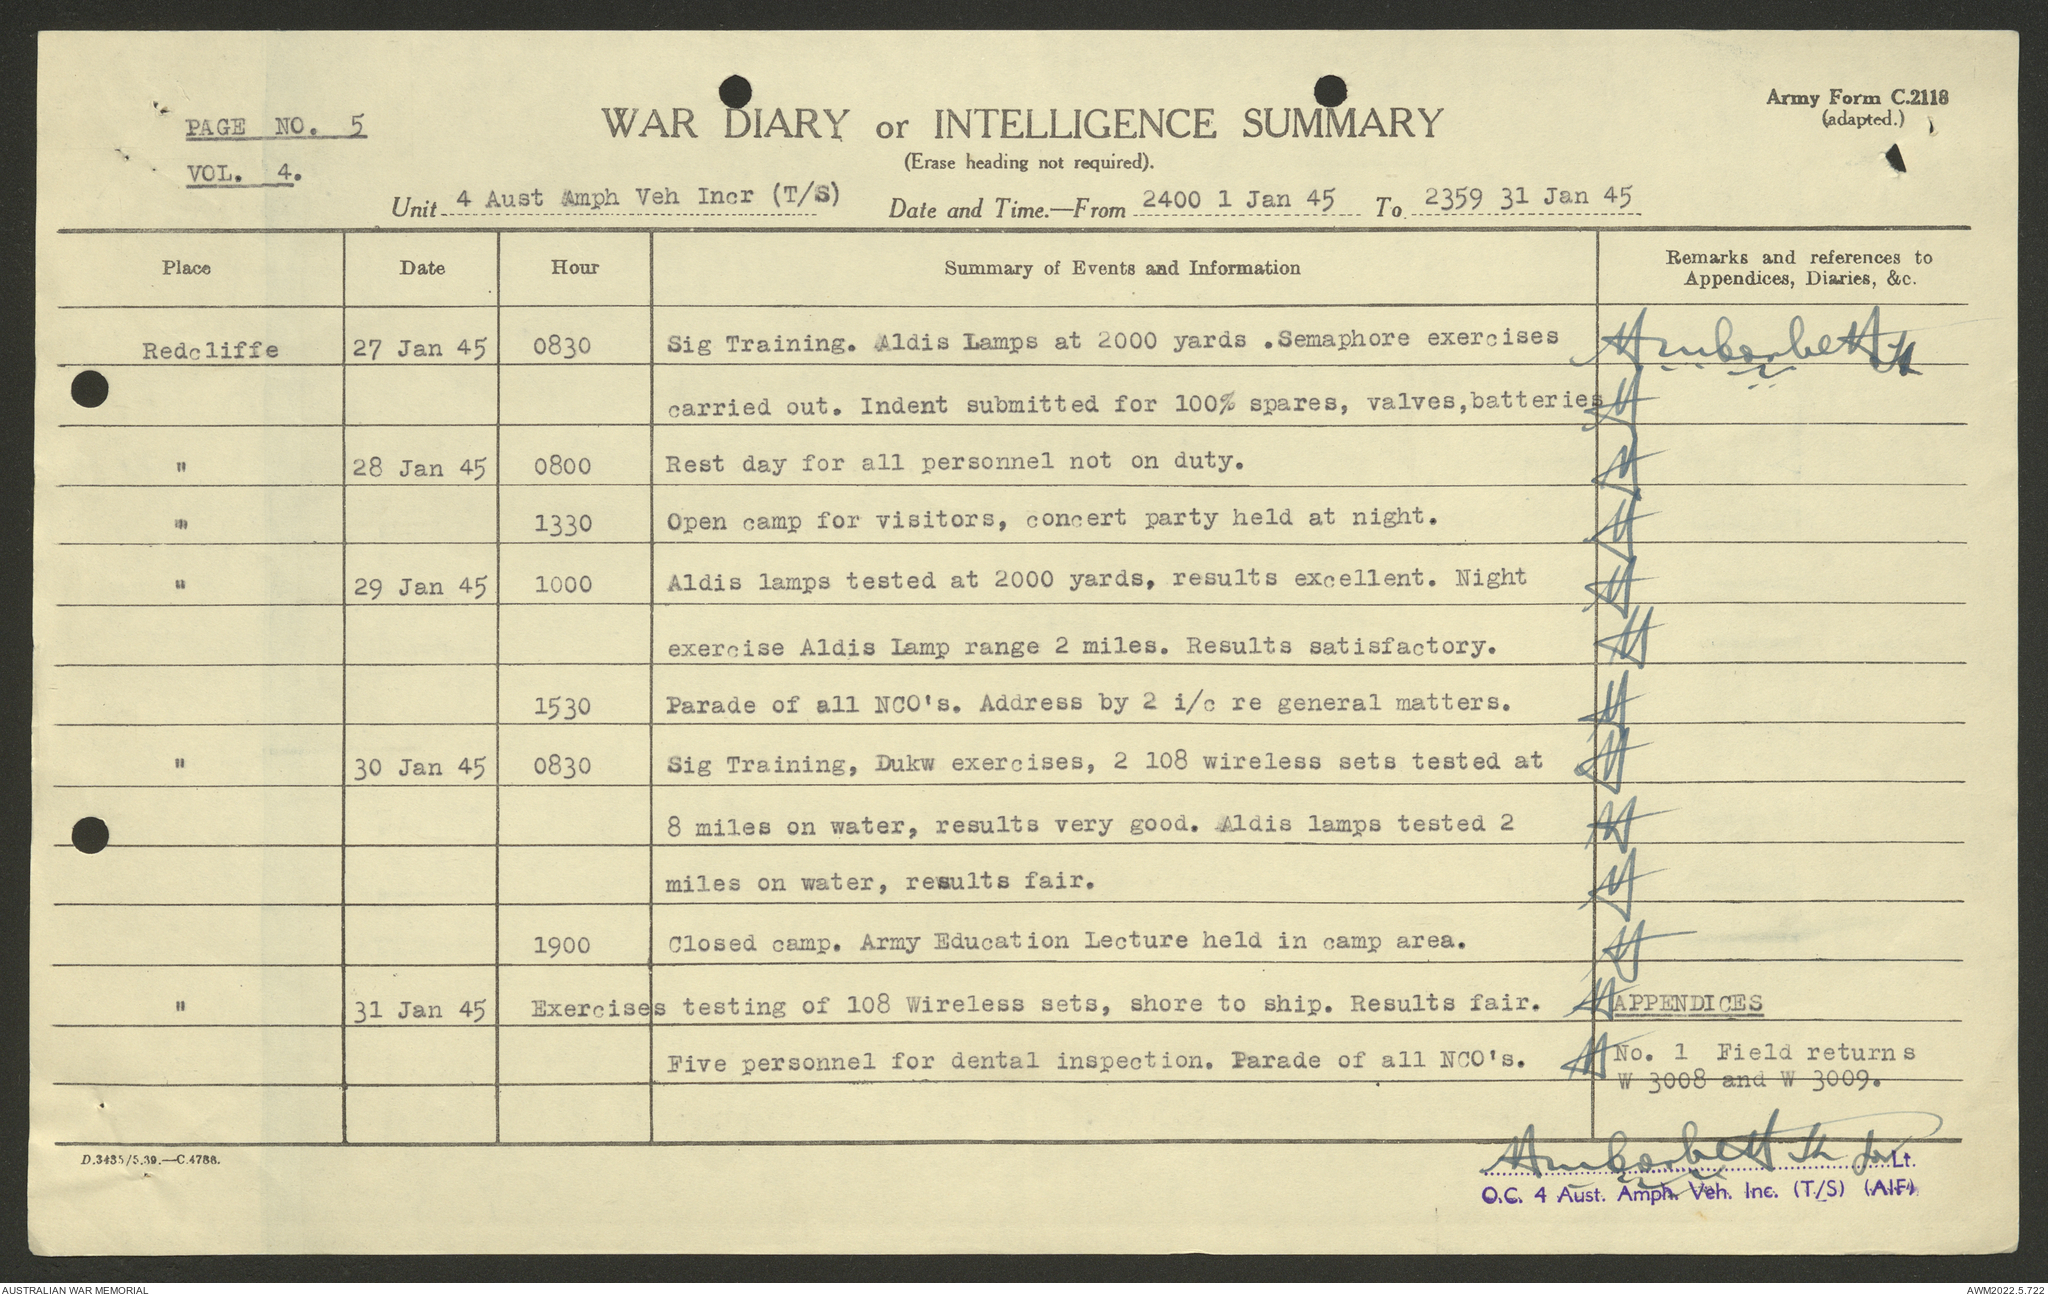 PAGE NO. 5
VOL. 4.
WAR DIARY or INTELLIGENCE SUMMARY
(Erase heading not required).
Army Form C.2118
(adapted.)
Unit 4 Aust Amph Veh Incr (T/S) Date and Time.—From 2400 1 Jan 45 To 2359 31 Jan 45
Place Date Hour Summary of Events and Information Remarks and references to
Appendices, Diaries, &c.
Redcliffe 27 Jan 45 0830 Sig Training. Aldis Lamps at 2000 yards .Semaphore exercises
carried out. Indent submitted for 100% spares, valves,batteries
" 28 Jan 45 0800 Rest day for all personnel not on duty.
" 1330 Open camp for visitors, concert party held at night.
" 29 Jan 45 1000 Aldis lamps tested at 2000 yards, results excellent. Night
exercise Aldis Lamp range 2 miles. Results satisfactory.
1530 Parade of all NCO's. Address by 2 i/c re general matters.
" 30 Jan 45 0830 Sig Training, Dukw exercises, 2 108 wireless sets tested at
8 miles on water, results very good. Aldis lamps tested 2
miles on water, results fair.
1900 Closed camp. Army Education Lecture held in camp area.
" 31 Jan 45 Exercises testing of 108 Wireless sets, shore to ship. Results fair. APPENDICES
Five personnel for dental inspection. Parade of all NCO's. No. 1 Field returns
W 3008 and W 3009.
D.3435/5.39.—C.4788.
Lt.
O.C. 4 Aust. Amph. Veh. Inc. (T/S) (AIF)
AUSTRALIAN WAR MEMORIAL
AWM2022.5.722